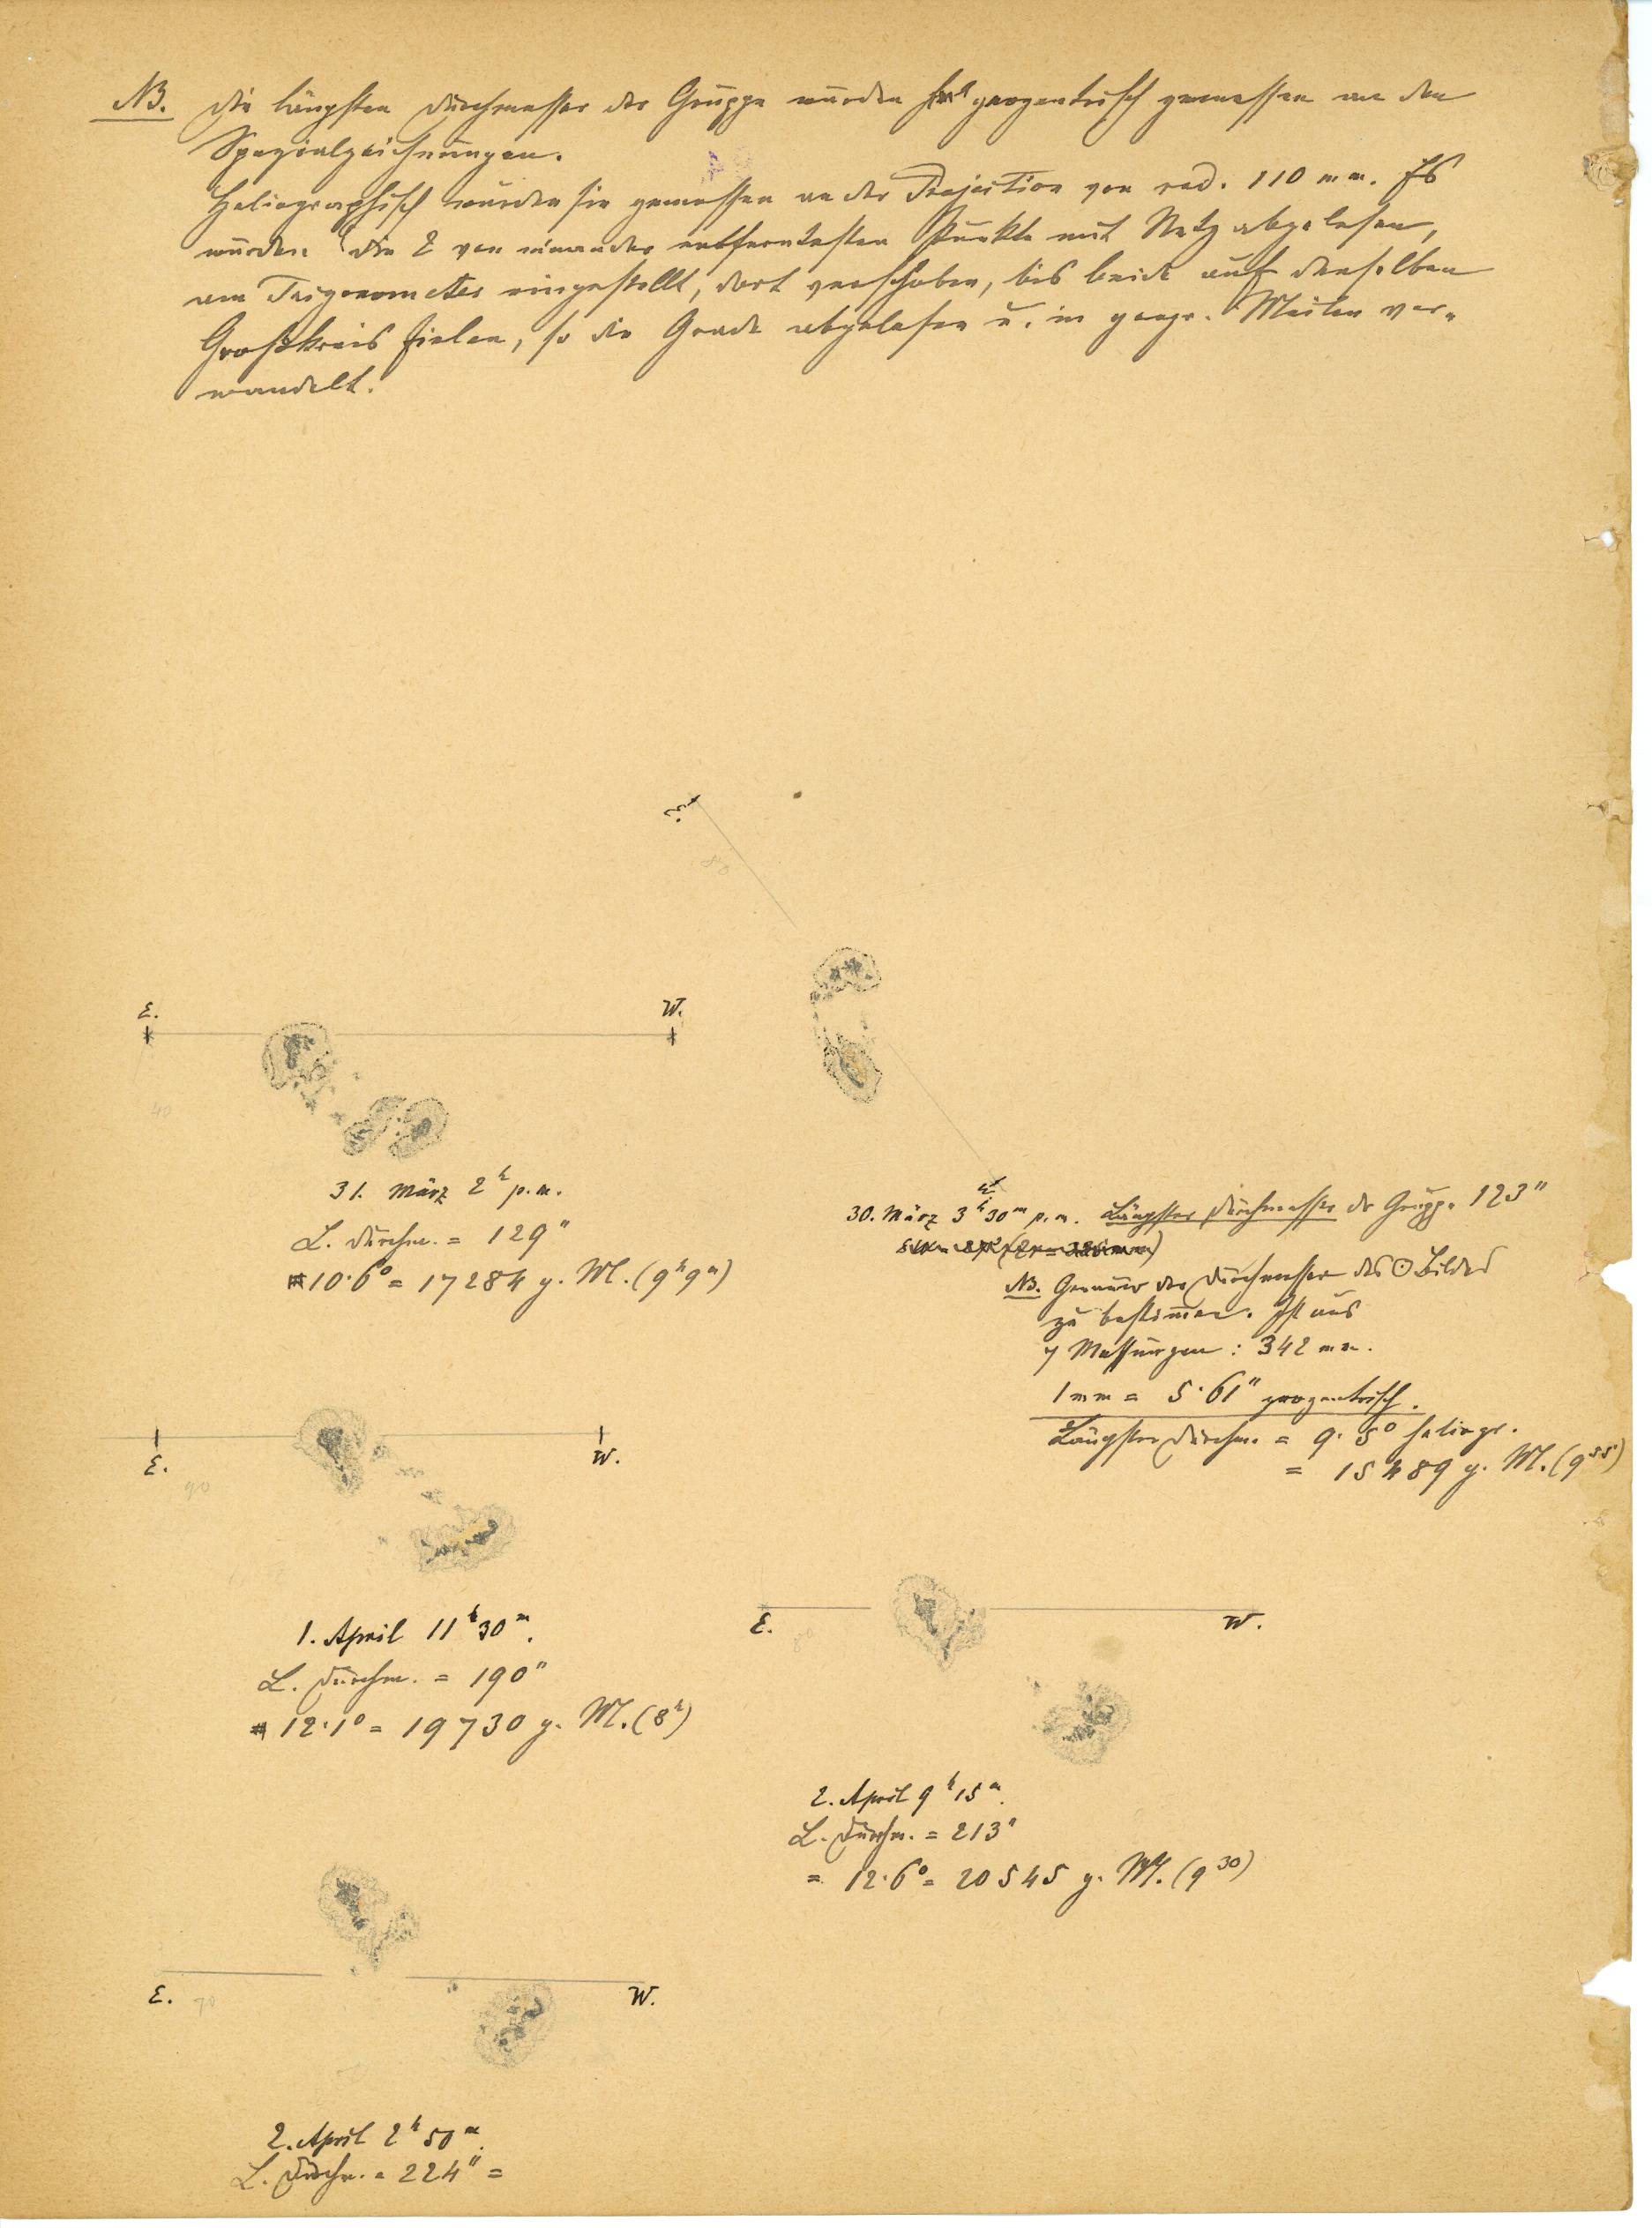 NB. Die längsten Durchmesser der Gruppe wurden geozentrisch gemessen an den
Spezialzeichnungen.
Heliographisch wurden sie gemessen an der Projection von rad. 110 mm. Es
wurden die 2 von einander entferntesten Punkte mit Netz abgelesen,
am Trigonometer eingestellt, dort verschoben, bis beide auf denselben
Großkreis fielen, so die Grade abgelesen u. in geogr. Meilen ver-
wandelt.
E.
E. W.
40
31. März 2h p.m.
L. Durchm. = 129"
10·6° = 17284 g. M. (9h9m)
W.
30. März 3h30m p.m. Längster Durchmesser der Gruppe 123"
NB. Genauer der Durchmesser des ☉Bildes
zu bestimmen. Ist aus
7 Messungen: 342 mm.
1mm = 5·61" geozentrisch.
Längster Durchm. = 9·5° heliogr.
= 15489 g. M. (9 55)
E. W.
90
1. April 11h30m.
L. Durchm. = 190"
12·1° = 19730 g. M. (8h)
E. W.
2. April 9h15m.
L. Durchm. = 213"
= 12·6° = 20545 g. M. (9 30)
E. 70 W.
2. April 2h50m.
L. Durchm. = 224" =